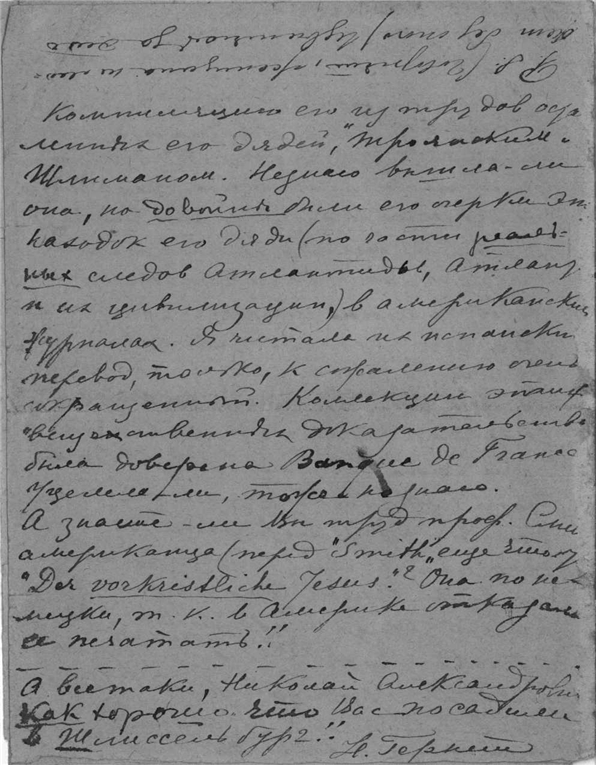 P. S.
Компиляцию его из трудов оста
вленных его дядей, "троянским"
Шлиманом. Не знаю вышла-ли
она, но до войны были его очерки
находок его дяди (по части реаль-
ных следов Атлантиды, Атлант
и их цивилизации,) в американских
журналах. Я читала их испански
перевод, только, к сожалению очень
сокращенный. Коллекция этих
"вещественных доказательств
была доверена Banque de France
Уцелела-ли, тоже не знаю.
А знаете-ли Вы труд проф. Сми
американца (перед "Smith" еще что-то
"Der vorkristliche Jesus"? Она по не-
мецки, т. к. в Америке отказали
ее печатать!!
А всетаки, Николай Александрович
как хорошо что Вас посадили
в Шлиссельбург!!
Н. Гернет